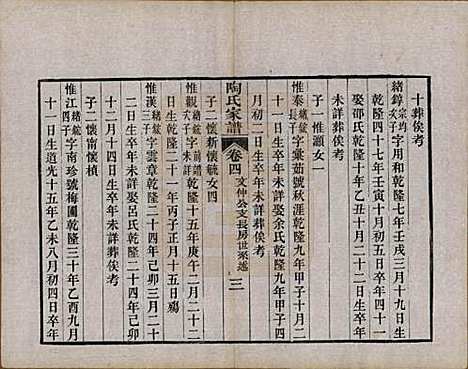 十葬俟考
緒鋅宗均次子字用和乾隆七年壬戌三月十九日生
乾隆四十七年壬寅十月初五日卒年四十一
娶邵氏乾隆十年乙丑三月初五日生卒年
未詳葬俟考
子一惟灝女一
惟泰緒鋐長子字彙茹號秋涯乾隆九年甲子十月二
十一日生卒年未詳娶余氏乾隆九年甲子四
月初二日生卒年未詳葬俟考
陶氏家譜
卷四
文仲公支長房世系述
三
子二懷新懷毓女四
惟觀緒鋐次子字前譜乾隆十五年庚午二月二十二
日生乾隆二十一年丙子正月十五日殤
惟漢緒鋐三子字雲章乾隆二十四年己卯三月二十
二日生卒年未詳娶呂氏乾隆二十四年己卯
十二月十四日生卒年未詳葬俟考
子二懷甯懷楨
惟江緒鋐四子字南珍號梅圃乾隆三十年乙酉九月
十一日生道光十五年乙未八月初四日卒年